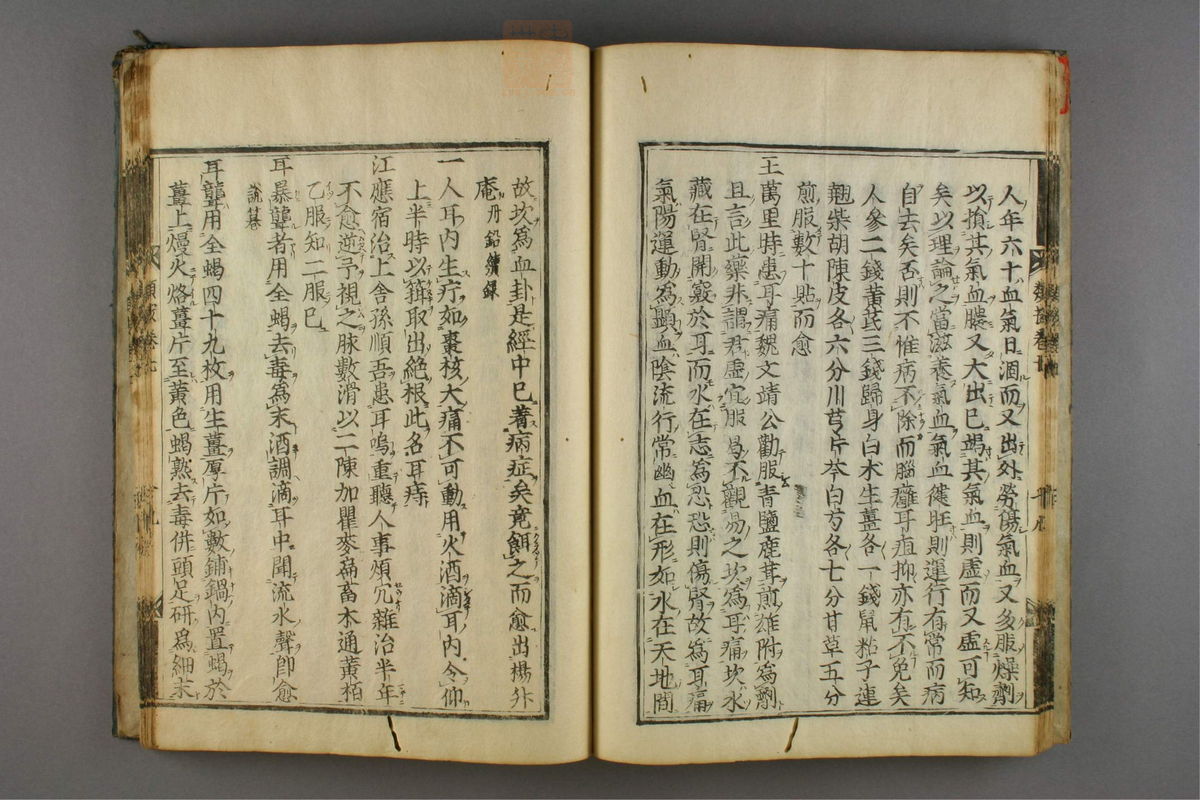 人年六十血氣日涸而又出外勞傷氣血又多服燥劑
以損其氣血膿又大出已竭其氣血則虛而又虛可知
矣以理論之當滋養氣血氣血健旺則運行有常而病
自去矣否則不惟病不除而腦癰耳疽抑亦有不免矣
人參二錢黃芪三錢歸身白朮生薑各一錢鼠粘子連
翹柴胡陳皮各六分川芎片芩白芍各七分甘草五分
煎服數十貼而愈
王萬里時患耳痛魏文靖公勸服青鹽鹿茸煎雄附爲劑
且言此藥非謂君虛宜服曷不觀易之坎爲耳痛坎水
藏在腎開竅於耳而水在志爲恐恐則傷腎故爲耳痛
氣陽運動爲顯血陰流行常幽血在形如水在天地間
故坎爲血卦是經中已著病症矣竟餌之而愈出楊升
庵丹鉛續録
一人耳內生疔如棗核大痛不可動用火酒滴耳內令仰
上半時以箝取出絶根此名耳痔
江應宿治上舍孫順吾患耳鳴重聽人事煩冗雜治半年
不愈逆予視之脉數滑以二陳加瞿麥萹蓄木通黃栢
乙服知二服已
耳暴聾者用全蝎去毒爲末酒調滴耳中聞流水聲卽愈
說纂
耳聾用全蝎四十九枚用生薑厚片如數鋪鍋內置蝎於
薑上熳火烙薑片至黃色蝎熟去毒併頭足研爲細末